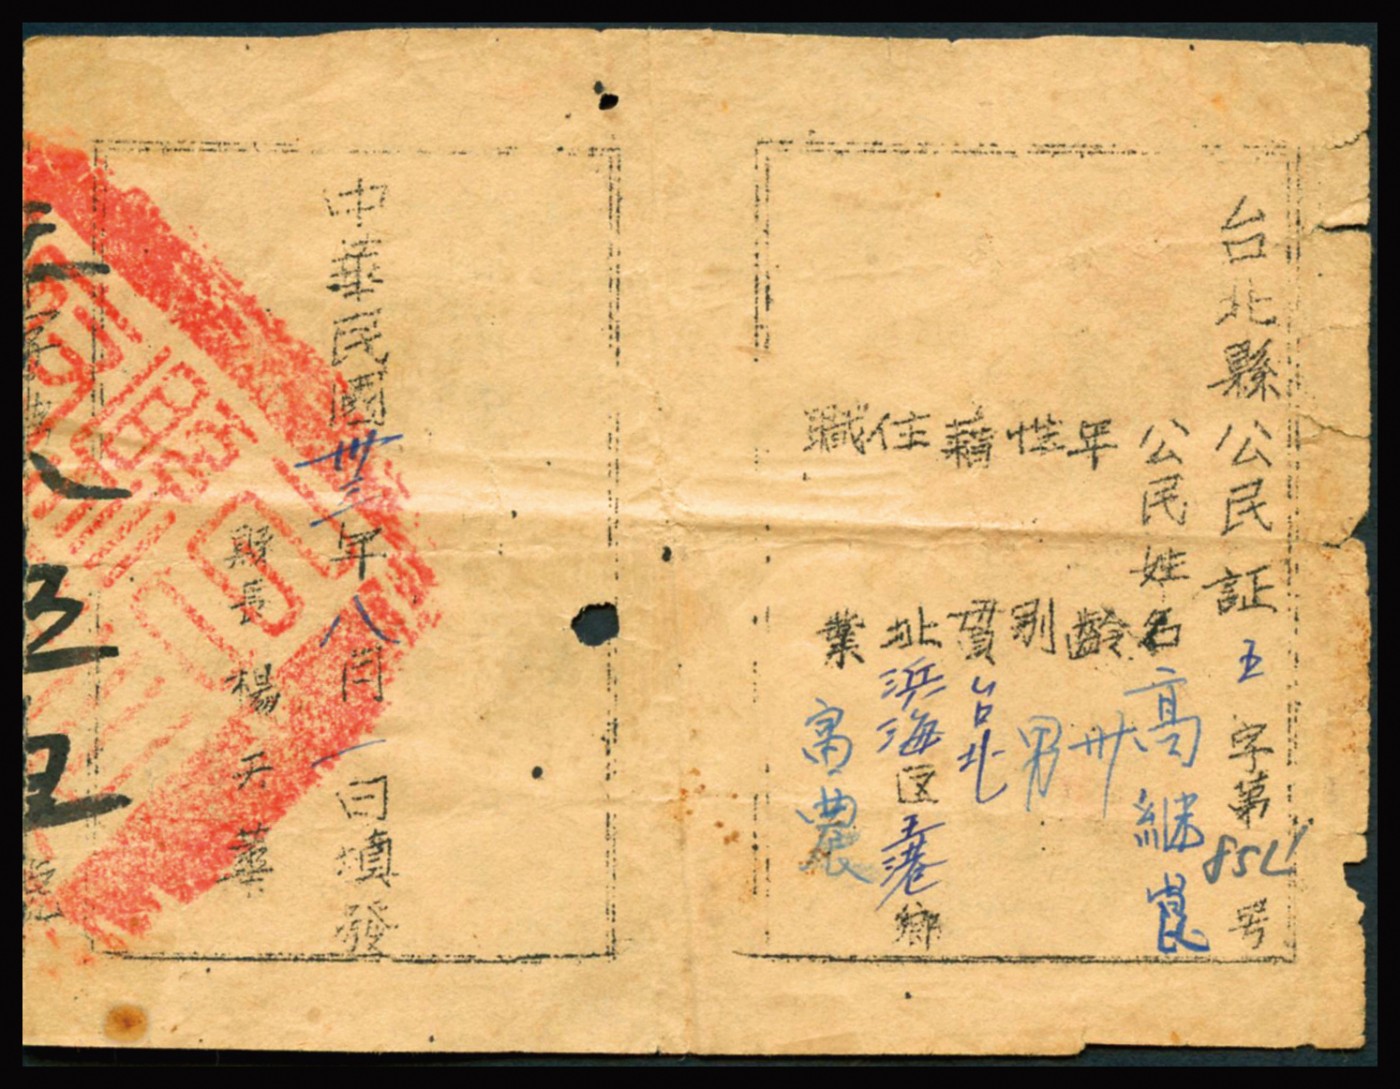 台北縣公民証 五字第851号
公民姓名 高継崑
年齡 卅
性別 男
藉貫 台北
住址 浜海区五港鄉
職業 富農
中華民國卅三年八月一日填發
縣長 楊天華